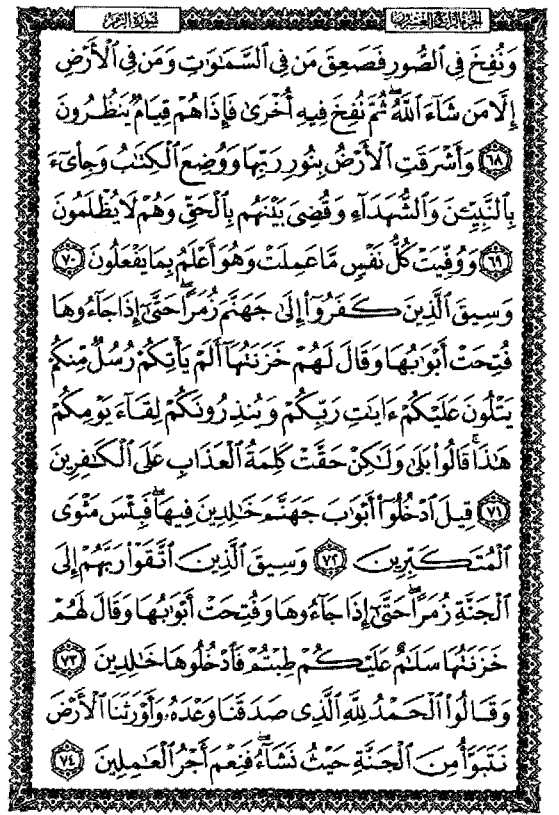 الجزء الرابع والعشرون
سورة الزمر
وَنُفِخَ فِى ٱلصُّورِ فَصَعِقَ مَن فِى ٱلسَّمَٰوَٰتِ وَمَن فِى ٱلْأَرْضِ
إِلَّا مَن شَآءَ ٱللَّهُ ۖ ثُمَّ نُفِخَ فِيهِ أُخْرَىٰ فَإِذَا هُمْ قِيَامٌ يَنظُرُونَ
٦٨ وَأَشْرَقَتِ ٱلْأَرْضُ بِنُورِ رَبِّهَا وَوُضِعَ ٱلْكِتَٰبُ وَجِا۟ىٓءَ
بِٱلنَّبِيِّۦنَ وَٱلشُّهَدَآءِ وَقُضِىَ بَيْنَهُم بِٱلْحَقِّ وَهُمْ لَا يُظْلَمُونَ
٦٩ وَوُفِّيَتْ كُلُّ نَفْسٍ مَّا عَمِلَتْ وَهُوَ أَعْلَمُ بِمَا يَفْعَلُونَ ٧٠
وَسِيقَ ٱلَّذِينَ كَفَرُوٓا۟ إِلَىٰ جَهَنَّمَ زُمَرًا ۖ حَتَّىٰٓ إِذَا جَآءُوهَا
فُتِحَتْ أَبْوَٰبُهَا وَقَالَ لَهُمْ خَزَنَتُهَآ أَلَمْ يَأْتِكُمْ رُسُلٌ مِّنكُمْ
يَتْلُونَ عَلَيْكُمْ ءَايَٰتِ رَبِّكُمْ وَيُنذِرُونَكُمْ لِقَآءَ يَوْمِكُمْ
هَٰذَا ۚ قَالُوا۟ بَلَىٰ وَلَٰكِنْ حَقَّتْ كَلِمَةُ ٱلْعَذَابِ عَلَى ٱلْكَٰفِرِينَ
٧١ قِيلَ ٱدْخُلُوٓا۟ أَبْوَٰبَ جَهَنَّمَ خَٰلِدِينَ فِيهَا ۖ فَبِئْسَ مَثْوَى
ٱلْمُتَكَبِّرِينَ ٧٢ وَسِيقَ ٱلَّذِينَ ٱتَّقَوْا۟ رَبَّهُمْ إِلَى
ٱلْجَنَّةِ زُمَرًا ۖ حَتَّىٰٓ إِذَا جَآءُوهَا وَفُتِحَتْ أَبْوَٰبُهَا وَقَالَ لَهُمْ
خَزَنَتُهَا سَلَٰمٌ عَلَيْكُمْ طِبْتُمْ فَٱدْخُلُوهَا خَٰلِدِينَ ٧٣
وَقَالُوا۟ ٱلْحَمْدُ لِلَّهِ ٱلَّذِى صَدَقَنَا وَعْدَهُۥ وَأَوْرَثَنَا ٱلْأَرْضَ
نَتَبَوَّأُ مِنَ ٱلْجَنَّةِ حَيْثُ نَشَآءُ ۖ فَنِعْمَ أَجْرُ ٱلْعَٰمِلِينَ ٧٤